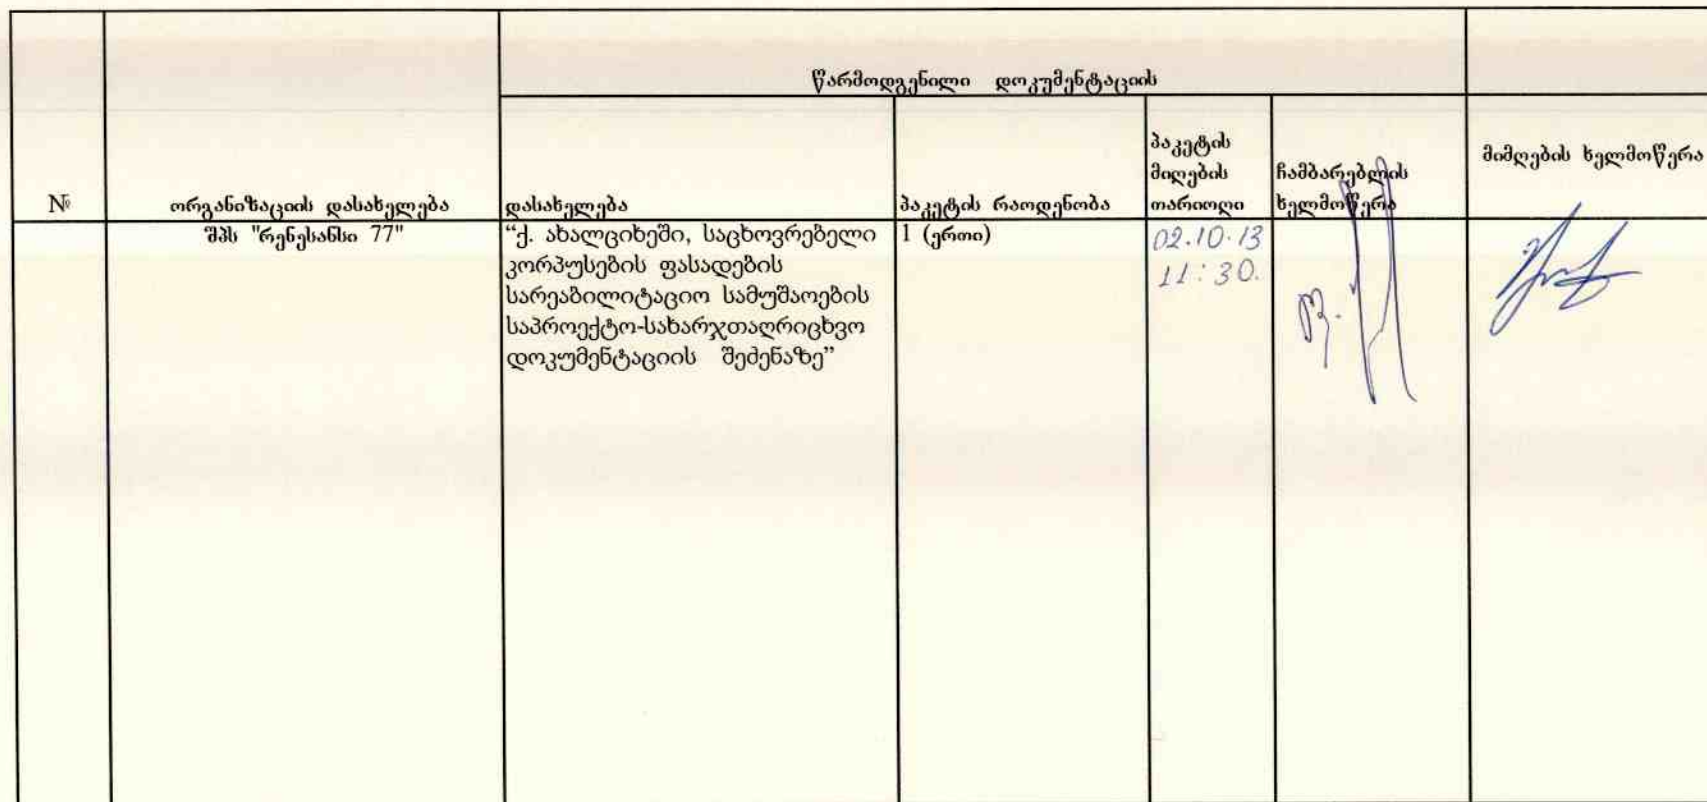 წარმოდგენილი დოკუმენტაციის
№
ორგანიზაციის დასახელება
დასახელება
პაკეტის რაოდენობა
პაკეტის
მიღების
თარიღი
ჩამბარებლის
ხელმოწერა
მიმღების ხელმოწერა
შპს "რენესანსი 77"
“ქ. ახალციხეში, საცხოვრებელი
კორპუსების ფასადების
სარეაბილიტაციო სამუშაოების
საპროექტო-სახარჯთაღრიცხვო
დოკუმენტაციის შეძენაზე”
1 (ერთი)
02.10.13
11:30.